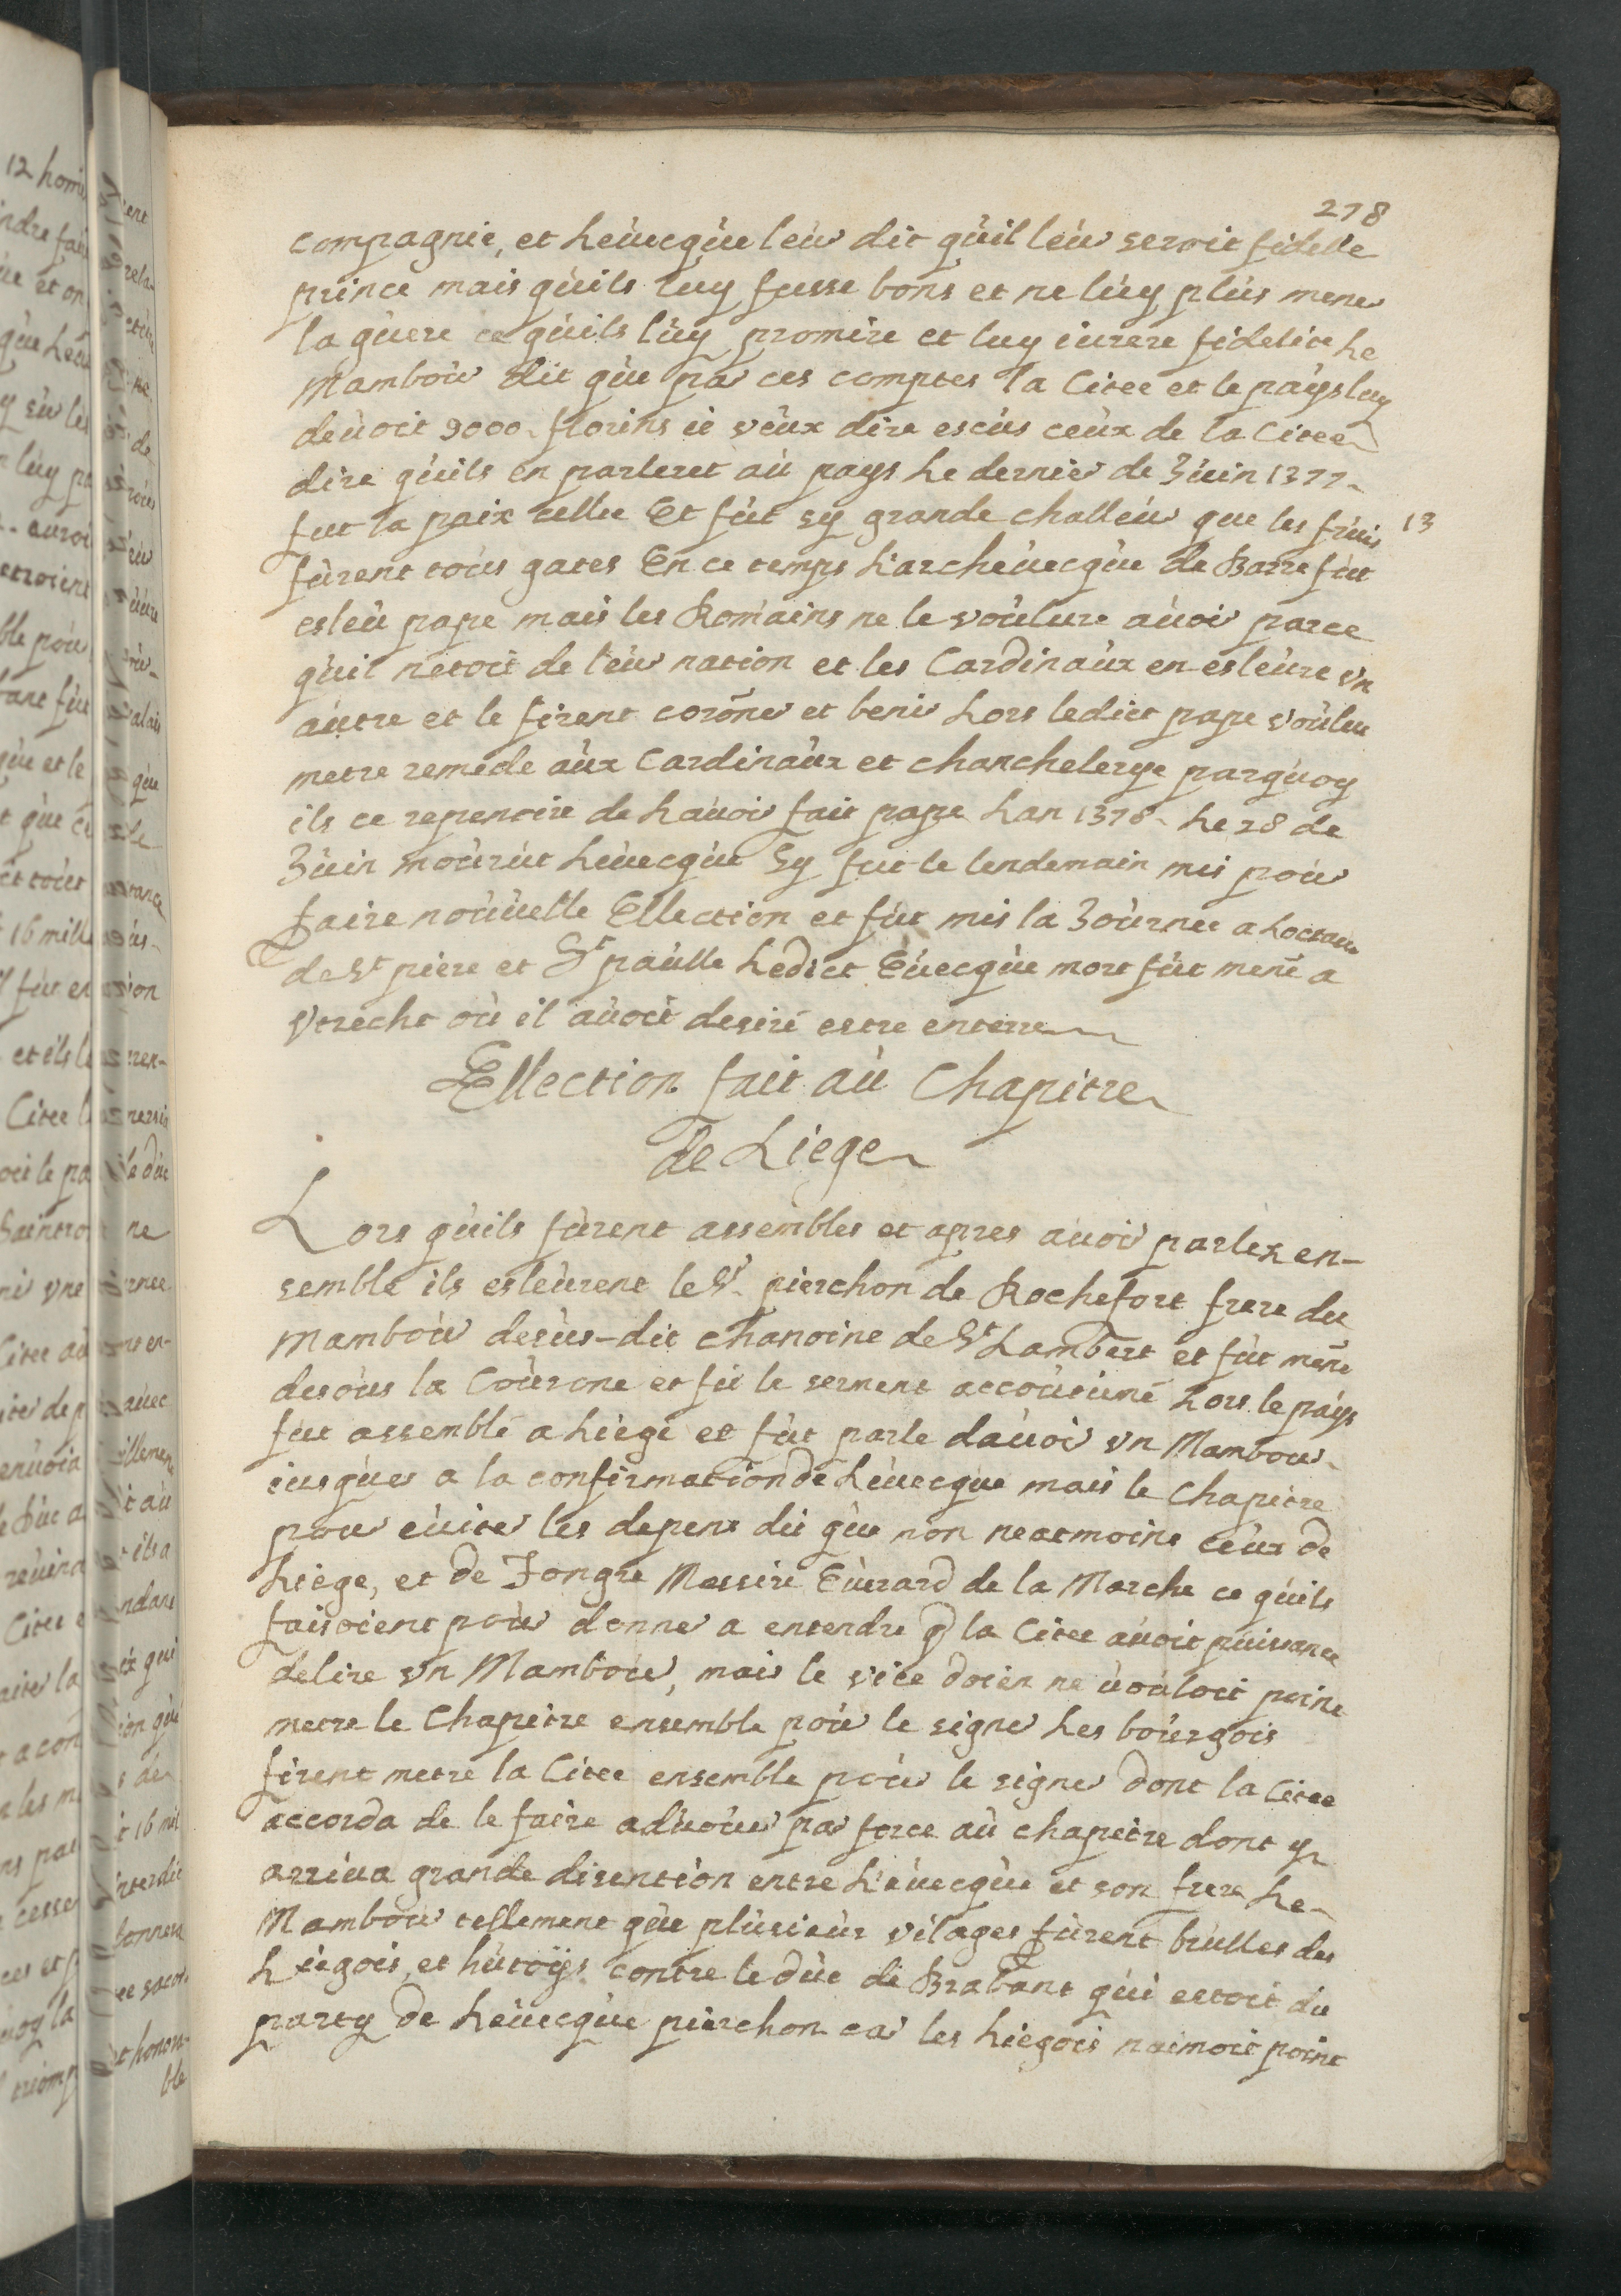 278
compagnie, et Leùecqùe leùr dit qùil leùr seroit fidelle
prince mais qùils luy fusse bons et ne lùy plùs mener
la gùere ce qùils lùy promire et luy iurere fidelite Le
Mamboùr dit qùe par ces comptes la Citee et le paÿs luy
deùoit 9000 florins ie veùx dire escùs ceùx de la Citee
dire qùils en parleret aù pays Le dernier de Jùin 1377
fut la paix cellee Et fùt sy grande challeùr que les frùis 13
fùrent toùs gates En ce temps Larcheùecqùe de Barre fùt
esleù pape mais les Romains ne le voùlure aùoir parce
qùil netoit de leùr nation et les Cardinaùx en esleùre vn
aùtre et le firent coroñer et benir Lors ledict pape voùlu
metre remede aùx Cardinaùx et chanchelerye parqùoy
ils ce repentire de Laùoir fait pape Lan 1378 Le 28 de
Jùin moùrùt Leùecqùe Sy fut le lendemain mis poùr
faire noùùelle Ellection et fùt mis la Joùrnee a Loctaue
de St piere et St paùlle Ledict Eùecqùe mort fùt mené a
Vtrecht où il aùoit desiré estre enterre
Ellection fait aù Chapitre
de Liege
Lors qùils fùrent assembles et apres aùoir parlez en-
semble ils esleùrent le Sr pierchon de Rochefort frere du
Mamboùr desùs-dit chanoine de St Lambert et fùt mené
desoùs la Coùrone et fit le serment accoùtumé Lors le paÿs
fut assemblé a Liege et fùt parle daùoir vn Mambour
iusqùes a la confirmation de Leùecque mais le Chapitre
pour eùiter les depens dit qùe non neatmoins ceùx de
Liege, et de Tongre Messire Eùerard de la Marche ce qùils
faisoient poùr donner a entendre q la Citee aùoit pùissance
delire vn Mamboùr, mais le vice doien ne ùoùloit point
metre le Chapitre ensemble poùr le signer Les boùrgois
firent metre la Citee ensemble poùr le signer dont la Citee
accorda de le faire aduoùer par force aù chapitre dont y
arriùa grande disention entre Leùecqùe et son frere Le
Mamboùr tellement qùe plùsieùr vilages fùrent brulles des
Liegois, et hùtoÿs contre le dùc de Brabant qùi estoit du
party de Leùecqùe pierchon car les Liegois naimoit point